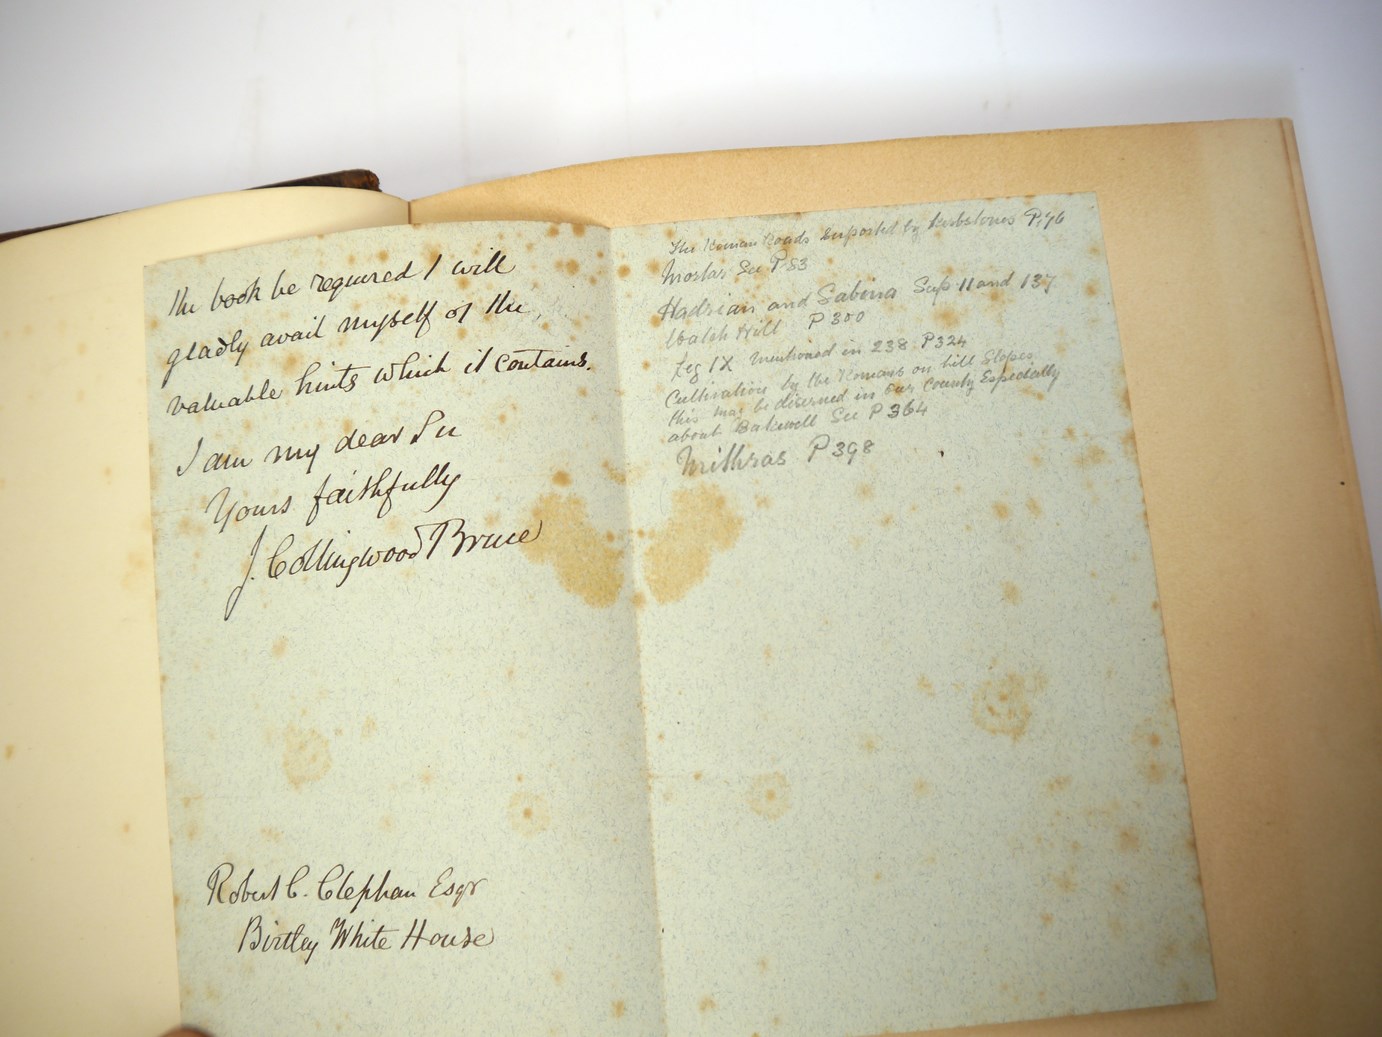 the book be required I will
gladly avail myself of the
valuable hints which it contains.
I am my dear Sir
Yours faithfully
J. Collingwood Bruce
Robert C. Clephan Esqr
Birtley White House
The Roman Roads Suported by Kirbstones P. 76
Mortar See P 83
Hadrian and Sabina See p 11 and 137
Walsh Hill P 300
Leg IX Mentioned in 238. P 324
Cultivation by the Romans on hill Slopes
this may be discerned in our County Especially
about Bakewell See P 364
Mithras P 398